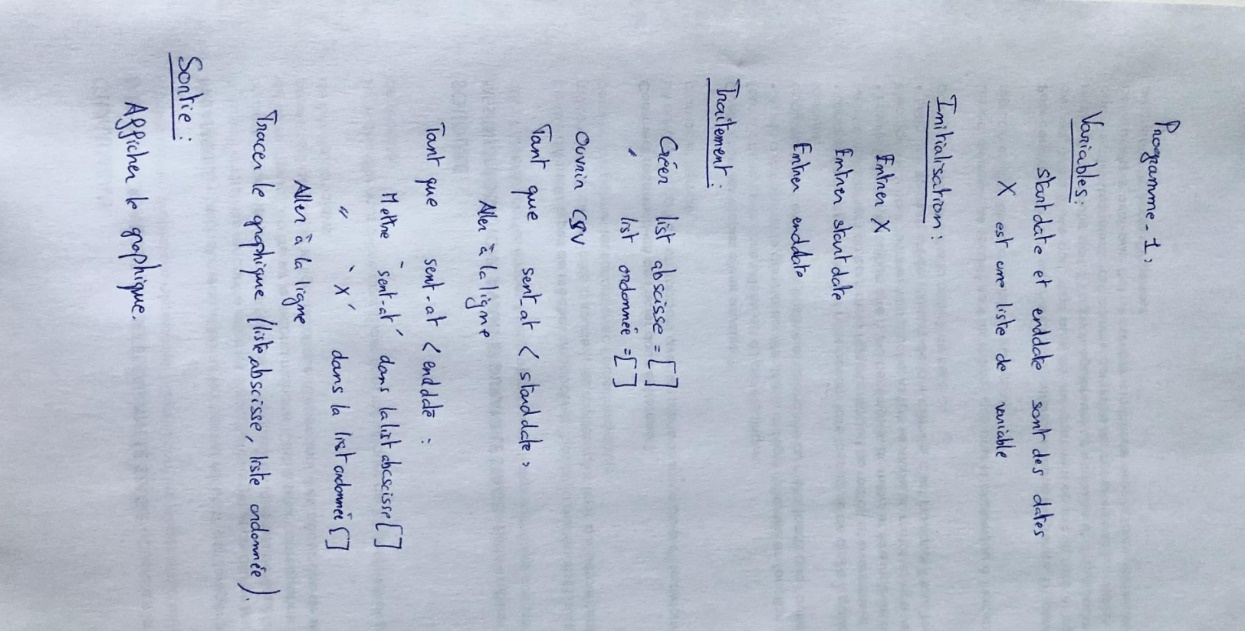 Programme_1:
Variables:
startdate et enddate sont des dates
X est une liste de variable
Initialisation:
Entrer X
Entrer startdate
Entrer enddate
Traitement:
Créer list abscisse = []
" list ordonnée = []
Ouvrir CSV
Tant que sent_at < startdate:
Aller à la ligne
Tant que sent-at < enddate:
Mettre "sent-at" dans la list abscisse []
" "X" dans la list ordonnée []
Aller à la ligne
Tracer le graphique (liste abscisse, liste ordonnée).
Sortie:
Afficher le graphique.